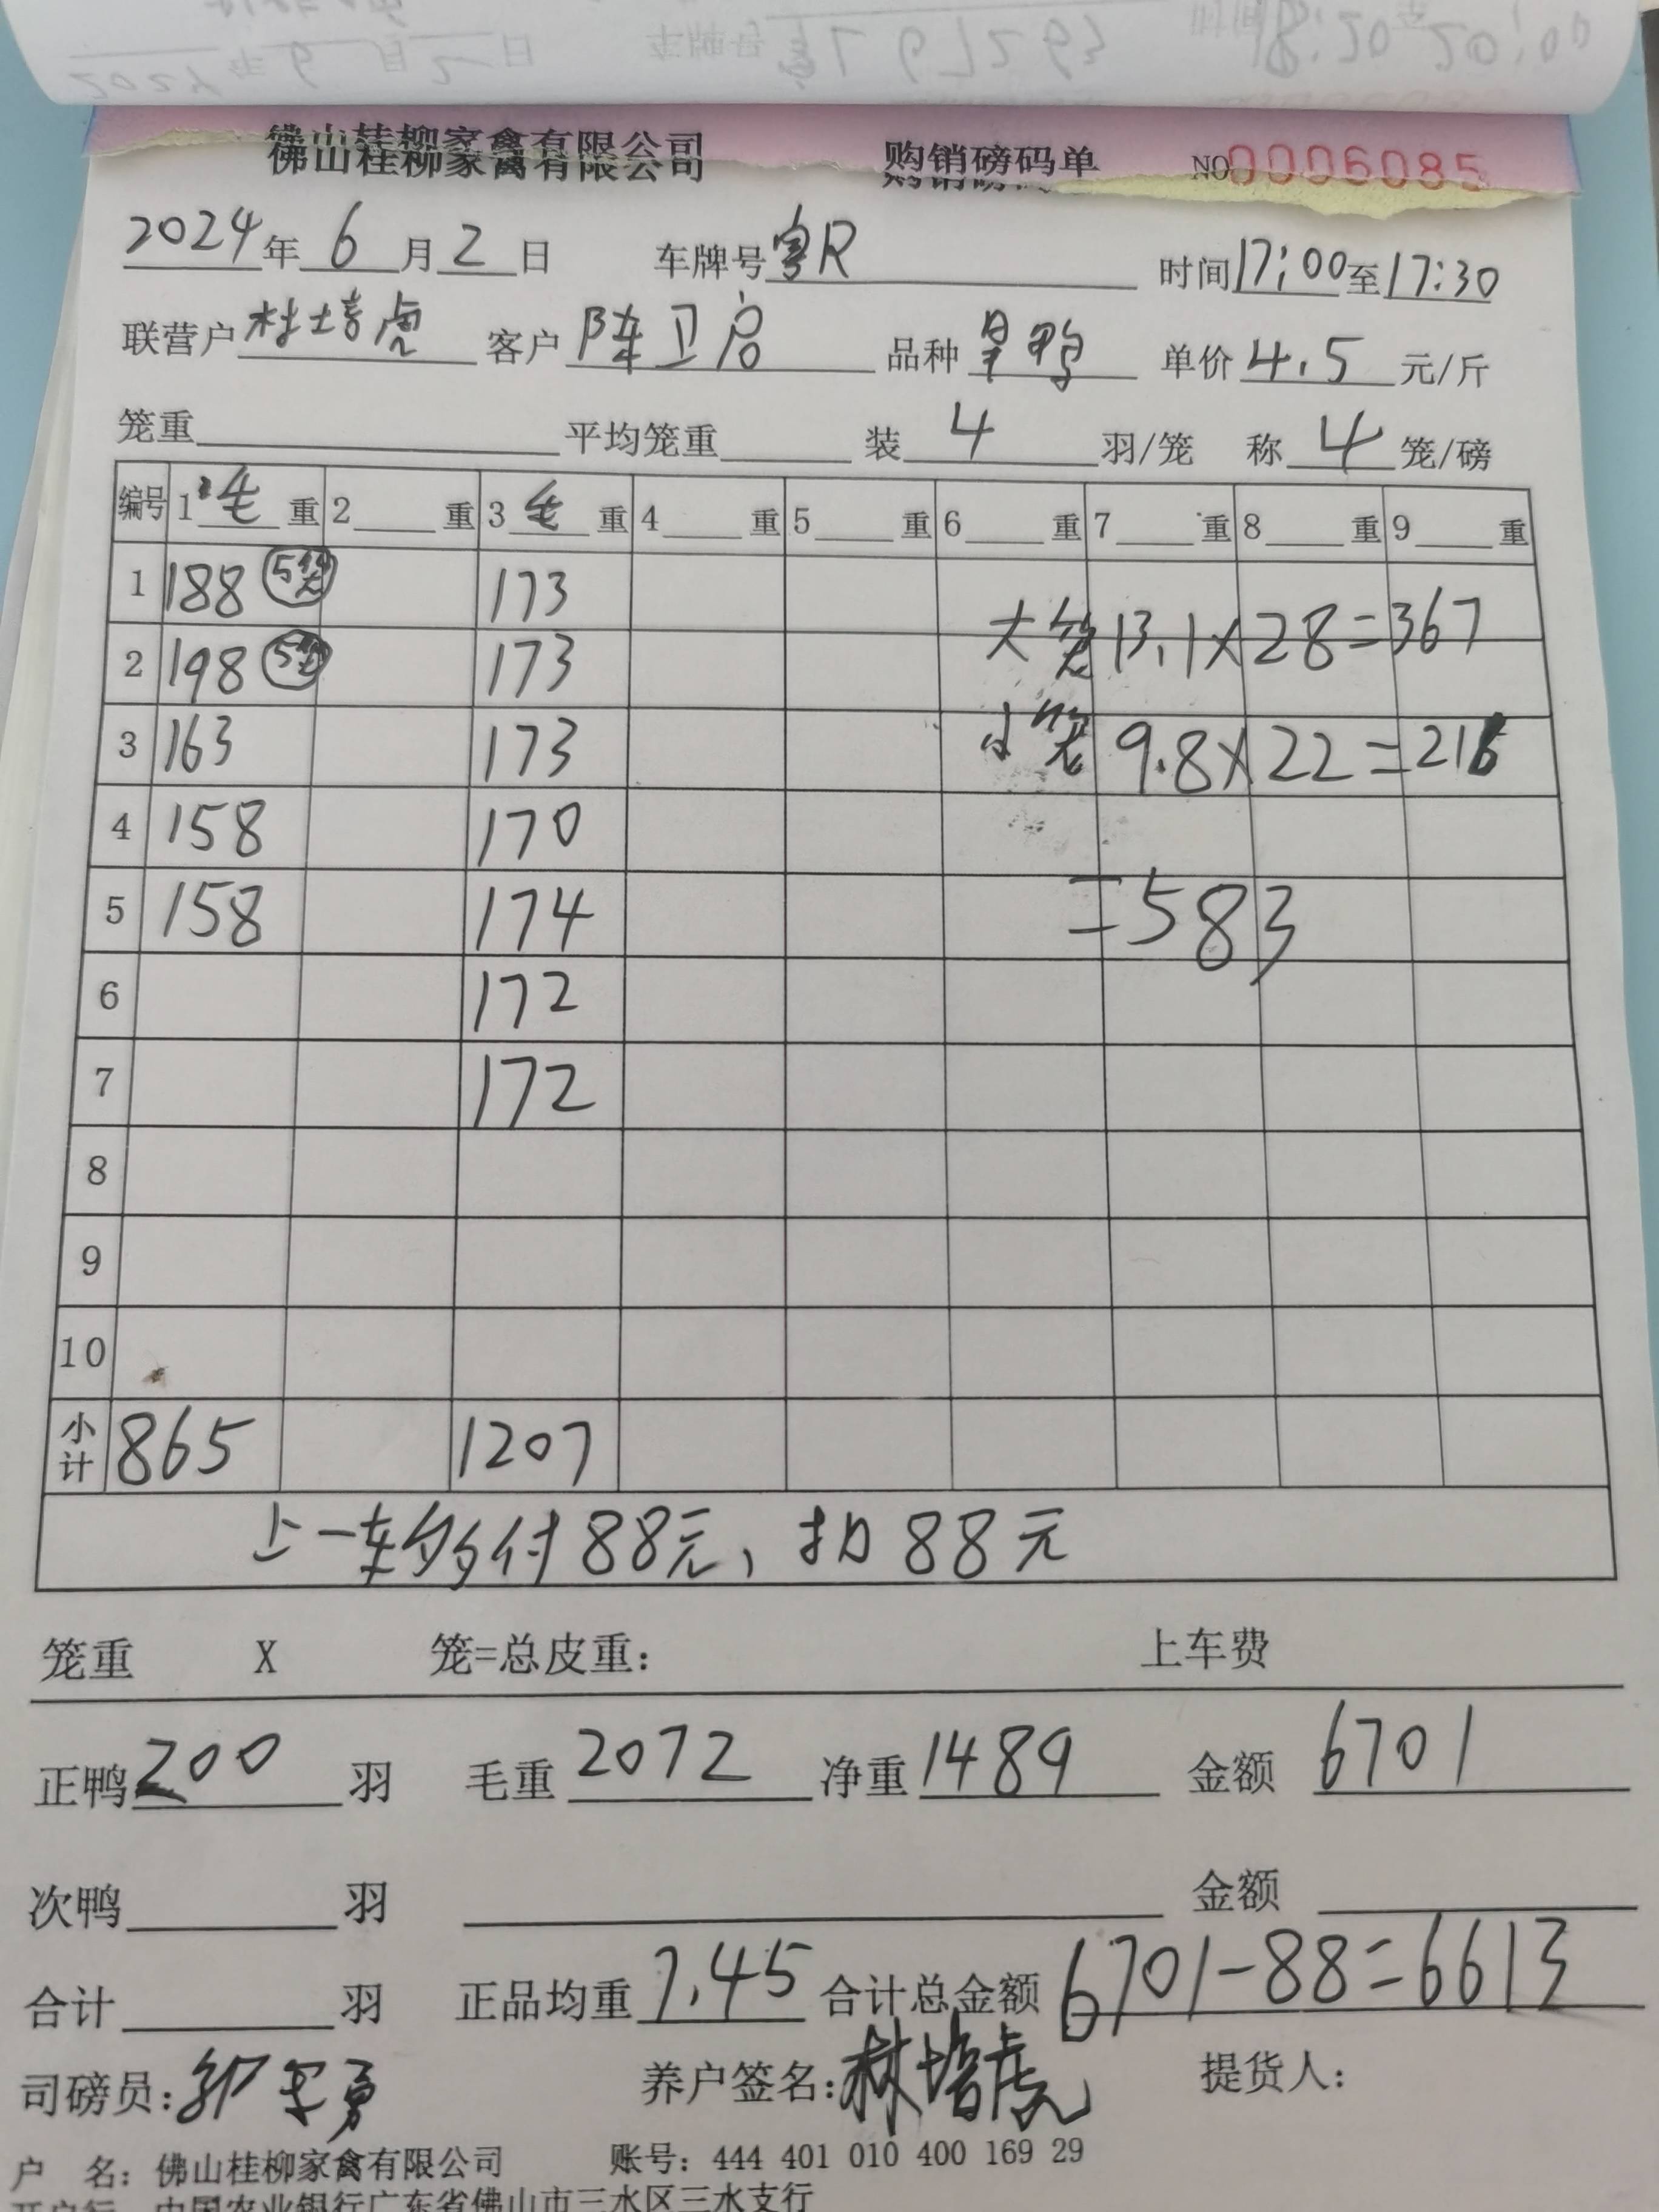 佛山桂柳家禽有限公司 购销磅码单 NO0006085
2024年6月2日 车牌号粤R 时间17:00至17:30
联营户林培虎 客户陈卫启 品种 单价4.5元/斤
笼重 平均笼重 装4羽/笼 称4笼/磅
编号 1毛重 2重 3毛重 4重 5重 6重 7重 8重 9重
1 188 5笼 173
大笼13.1×28=367
2 198 5笼 173
3 163 173
小笼9.8×22=216
4 158 170
5 158 174
=583
6 172
7 172
8
9
10
小计 865 1207
上一车多付88元、扣88元
笼重 X 笼=总皮重: 上车费
正鸭200羽 毛重2072 净重1489 金额6701
次鸭 羽 金额
合计 羽 正品均重7.45 合计总金额6701-88=6613
司磅员: 养户签名:林培虎 提货人:
户 名: 佛山桂柳家禽有限公司 账号: 444 401 010 400 169 29
开户行: 中国农业银行广东省佛山市三水区三水支行